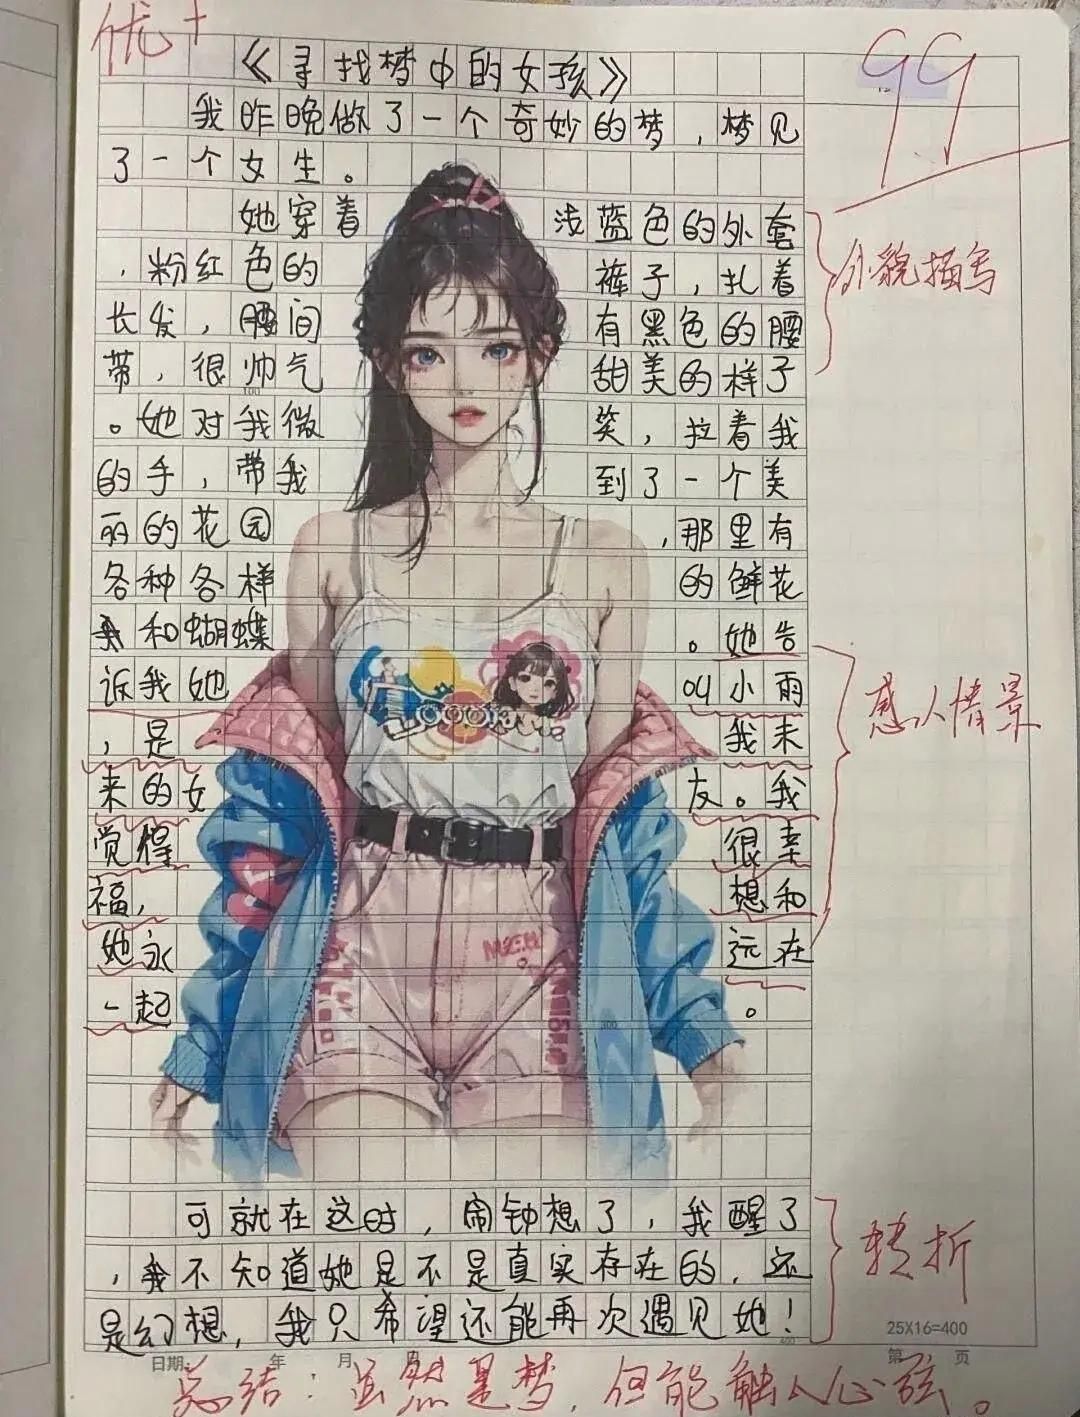 优+
99
《寻找梦中的女孩》
我昨晚做了一个奇妙的梦，梦见
了一个女生。
她穿着浅蓝色的外套
，粉红色的裤子，扎着
长发，腰间有黑色的腰
带，很帅气甜美的样子
。她对我微笑，拉着我
的手，带我到了一个美
丽的花园，那里有
各种各样的鲜花
和蝴蝶。她告
诉我她叫小雨
，是我未
来的女友。我
觉得很幸
福，想和
她永远在
一起。
可就在这时，闹钟想了，我醒了
，我不知道她是不是真实存在的，还
是幻想，我只希望还能再次遇见她！
外貌描写
感人情景
转折
100
300
400
25X16=400
日期 年 月
第 页
总结：虽然是梦，但能触人心弦。